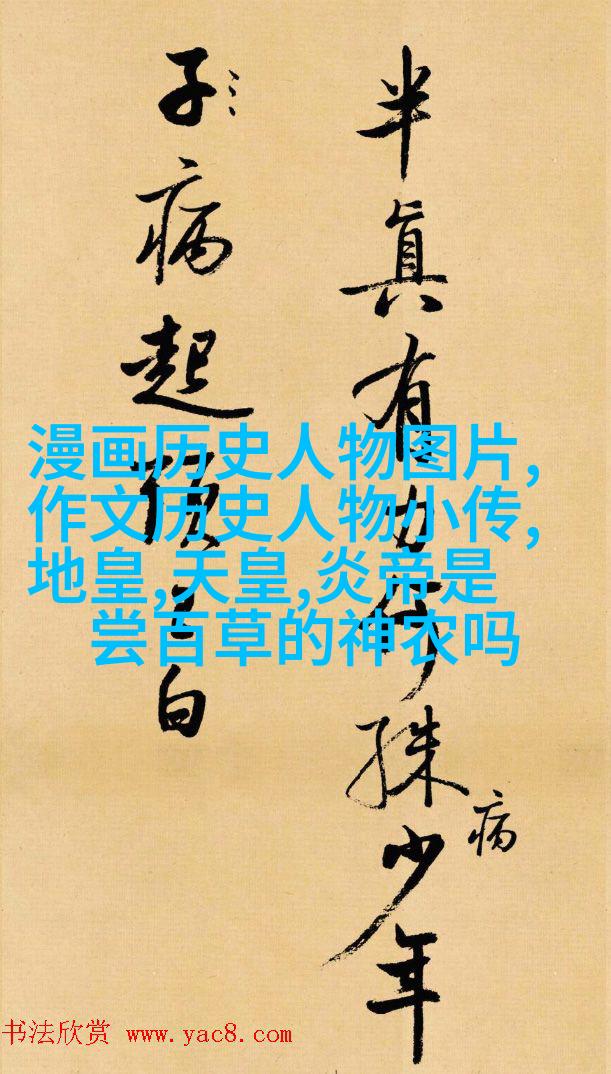 半真有力何殊病少年
子病起頭已白
漫画历史人物图片,
作文历史人物小传,
地皇,天皇,炎帝是
尝百草的神农吗
书法欣赏 www.yac8.com